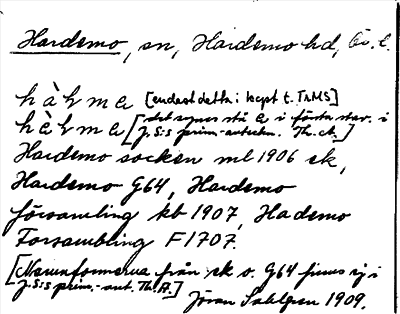 Hardemo, sn, Hardemo hd, Ös. L.
hàℏma [endast detta i kept t. TrMS]
hàℏma [det synes stå a i första stav. i
J.S:s prim.-anteckn. Th. A.]
Hardemo socken ml 1906 sk,
Hardemo G64, Hardemo
församling kb 1907, Hademo
Forsambling F1707.
[Namnformerna från sk o. G64 finns ej i
J.S:s prim.-ant. Th. A.]
Jöran Sahlgren 1909.